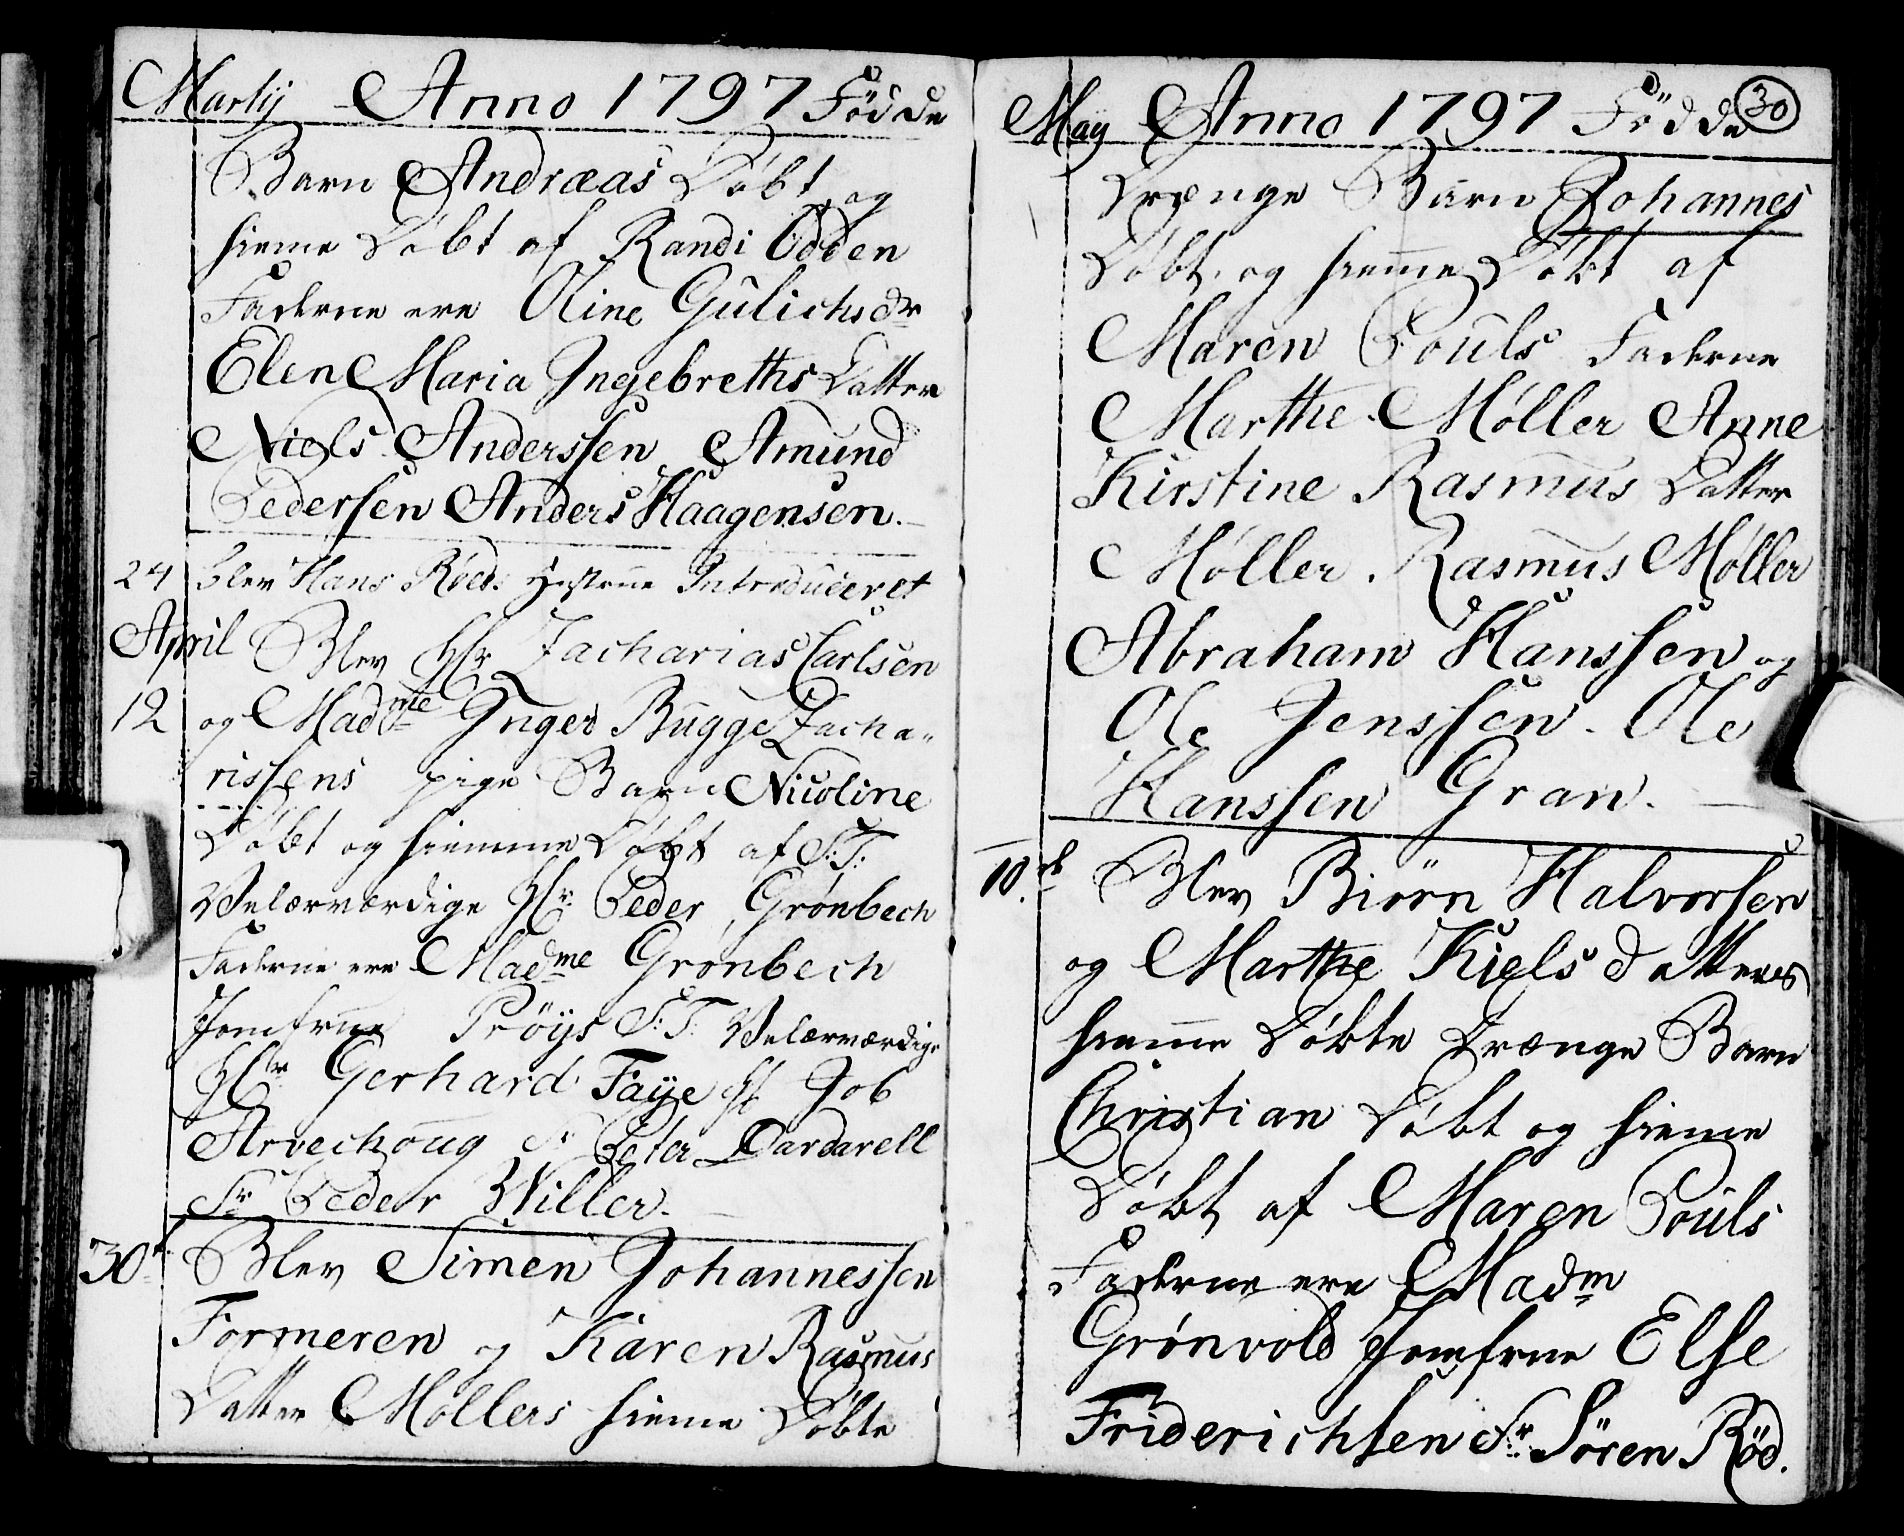 Martij Anno 1797 Födde
Barn Andræas Döbt og
hieme Döbt af Randi Odden
Faderne ere Oline Gulichsdr
Elen Maria Ingebreths Datter
Niels Anderssen Amund
Pedersen Anders Haagensen.
24 blev Hans Röed: Hustrue Introduceret
April Blev Hr Zacharias Carlsen
12 og Madme Inger Bugge Zacha„
rissens pige Barn Nicoline
Döbt og hiemme Döbt af S:T:
Velærværdige Hr: Peder Grønbech
Faderne ere Madme Grønbech
Jomfrue Pröys S:T: Velærværdige
Hr Gerhard Faye Hr Job
Arvechoug Sr Peter Dardarell
Sr Peder Willer.
30t Blev Simen Johannessen
Formeren og Karen Rasmus
Datter Møllers hieme Döbte
May Anno 1797 Födde 30
Drænge Barn Johannes
Döbt og hieme Döbt af
Maren Pouls Faderne
Marthe Møller Anne
Kirstine Rasmus Datter
Møller. Rasmus Møller
Abraham Hanssen og
Ole Jenssen. Ole
Hanssen Gran.
10. Blev Biörn Halvorsen
og Marthe Kielsdatters
hieme Döbte Drænge Barn
Christian Döbt og hieme
Döbt af Maren Pouls
Faderne ere Madm
Grønvold Jomfrue Else
Friderichsen Sr. Sören Röd.